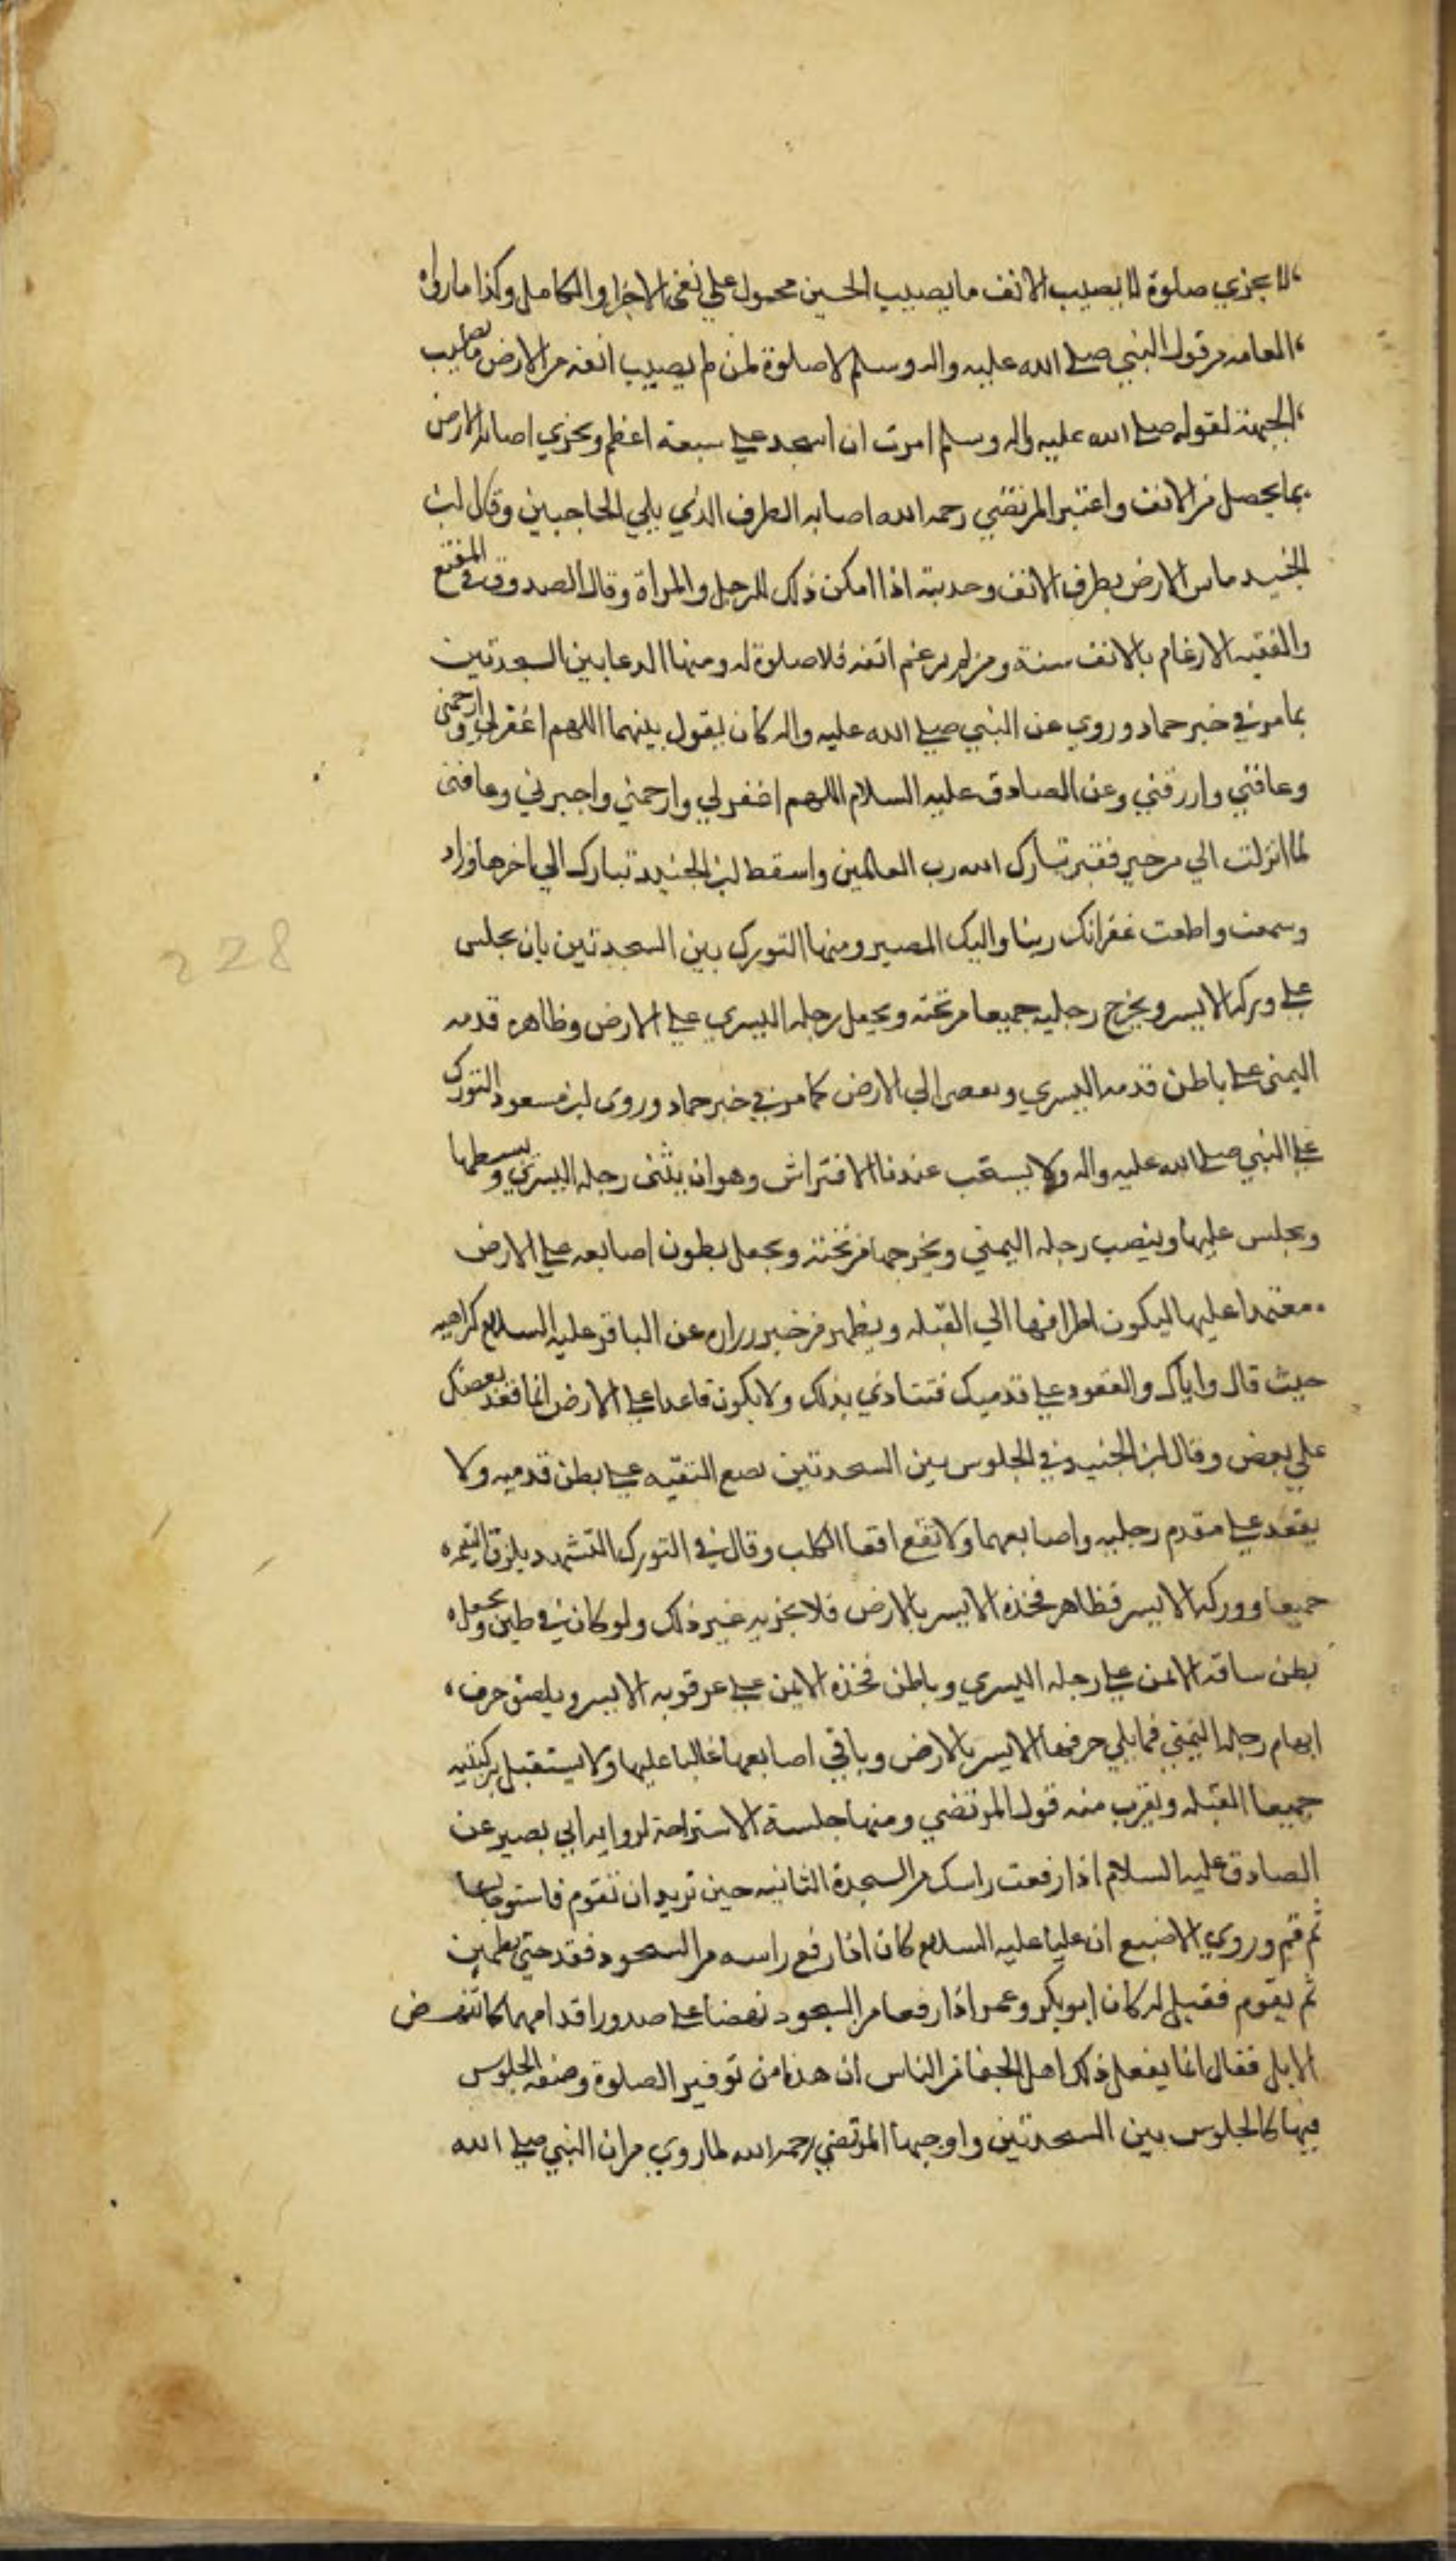 لا يجزي صلوة لا يصيب الانف ما يصيب الجبين محمول على نفي الاجزا والكامل وكذا ما رواه
العامه من قول النبي صلى الله عليه واله وسلم لا صلوة لمن لم يصيب انفه من الارض ما يصيب
الجبهة لقوله صلى الله عليه واله وسلم امرت ان اسجد على سبعة اعظم ويجزي اصابه الارض
بما يحصل من الانف واعتبر المرتضي رحمه الله اصابه الطرف الذي يلي الحاجبين وقال ابن
الجنيد ماس الارض بطرف الانف وحدبته اذا امكن ذلك للرجل والمراة وقال الصدوق في المقنع
والفقيه الارغام بالانف سنة ومن لم يرغم انفه فلا صلوة له ومنها الدعا بين السجدتين
بما مر في خبر حماد وروي عن النبي صلى الله عليه واله كان يقول بينهما اللهم اغفر لي وارحمني
وعافني وارزقني وعن الصادق عليه السلام اللهم اغفر لي وارحمني واجبرني وعافني
لما انزلت الي من خير فقير تبارك الله رب العالمين واسقط ابن الجنيد تبارك الي اخرها وزاد
وسمعت واطعت غفرانك ربنا واليك المصير ومنها التورك بين السجدتين بان يجلس
على وركه الايسر ويخرج رجليه جميعا من تحته ويجعل رجله اليسري على الارض وظاهر قدمه
اليمنى على باطن قدمه اليسري و الي الارض كما مر في خبر حماد وروى ابن مسعود التورك
عن النبي صلى الله عليه واله ولا يستحب عندنا الافتراش وهو ان يثنى رجله اليسري ويبسطها
ويجلس عليها وينصب رجله اليمني ويخرجها من تحته ويجعل بطون اصابعه على الارض
معتمدا عليها ليكون اطرافها الي القبله ويظهر من خبر زراره عن الباقر عليه السلام كراهيه
حيث قال واياك والقعود على قدميك فتتاذي بذلك ولا يكون قاعدا على الارض انما قعد بعضك
على بعض وقال ابن الجنيد في الجلوس بين السجدتين على بطن قدميه ولا
يقعد على مقدم رجليه واصابعهما ولا تقع اقعا الكلب وقال في التورك التشهد يلزق
جميعا ووركه الايسر فظاهر فخذه الايسر بالارض فلا يجزيه غير ذلك ولو كان في طين ويجعل
بطن ساقه الايمن على رجله اليسري وباطن فخذه الايمن على عرقوبه الايسر ويلصق حرف
ابهام رجله اليمني فما يلي حرفها الايسر بالارض وباقي اصابعها غالبا عليها ولا يستقبل بركبتيه
جميعا القبله ويقرب منه قول المرتضي ومنها جلسة الاستراحة لروايه ابي بصير عن
الصادق عليه السلام اذا رفعت راسك من السجدة الثانيه حين تريد ان تقوم فاستو جالسا
ثم قم وروي الاصبغ ان عليا عليه السلام كان اذا رفع راسه من السجود قعد حتي يطمئن
ثم يقوم فقيل له كان ابو بكر وعمر اذا رفعا من السجود نهضا على صدور اقدامهما كما تنهض
الابل فقال انما يفعل ذلك اهل الجفا من الناس ان هذا من توقير الصلوة وصفه الجلوس
فيها كالجلوس بين السجدتين واوجبها المرتضي رحمه الله لما روي من ان النبي صلى الله
228